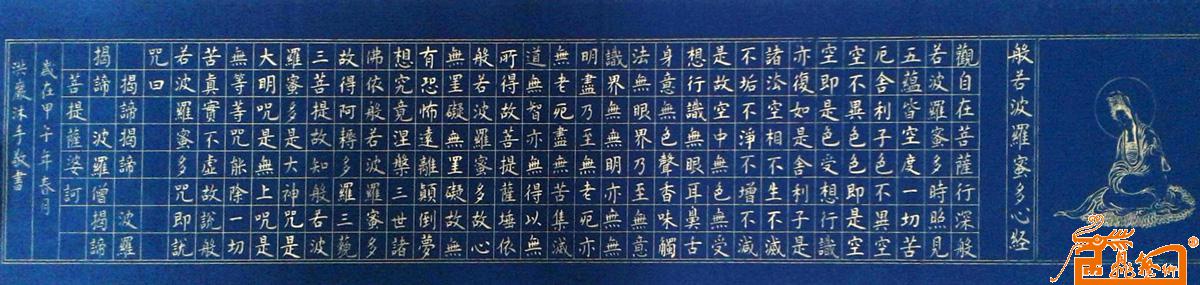 般若波羅蜜多心経
觀自在菩薩行深般
若波羅蜜多時照見
五蘊皆空度一切苦
厄舍利子色不異空
空不異色色即是空
空即是色受想行識
亦復如是舍利子是
諸法空相不生不滅
不垢不淨不增不減
是故空中無色無受
想行識無眼耳鼻舌
身意無色聲香味觸
法無眼界乃至無意
識界無無明亦無無
明盡乃至無老死亦
無老死盡無苦集滅
道無智亦無得以無
所得故菩提薩埵依
般若波羅蜜多故心
無罣礙無罣礙故無
有恐怖遠離顛倒夢
想究竟涅槃三世諸
佛依般若波羅蜜多
故得阿耨多羅三藐
三菩提故知般若波
羅蜜多是大神咒是
大明咒是無上咒是
無等等咒能除一切
苦真實不虛故說般
若波羅蜜多咒即說
咒曰
揭諦揭諦波羅
揭諦波羅僧揭諦
菩提薩婆訶
歲在甲午年春月
洪沐手敬書